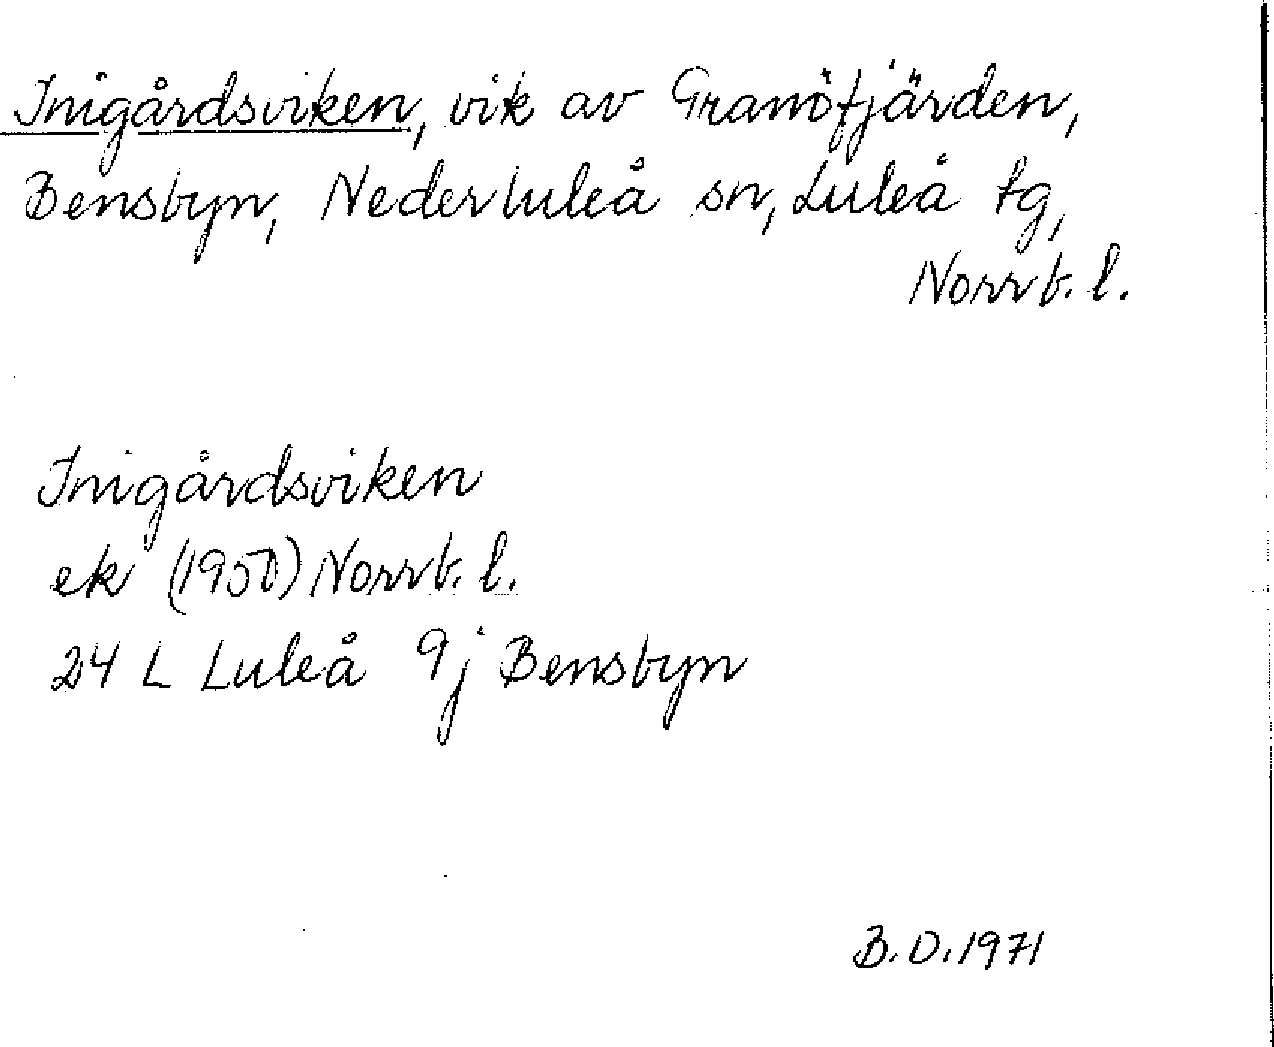 Inigårdsviken, vik av Granöfjärden,
Bensbyn, Nederluleå sn, Luleå tg,
Norrb. l.
Inigårdsviken
ek (1950) Norrb. l.
24 L Luleå 9j Bensbyn
B.D. 1971